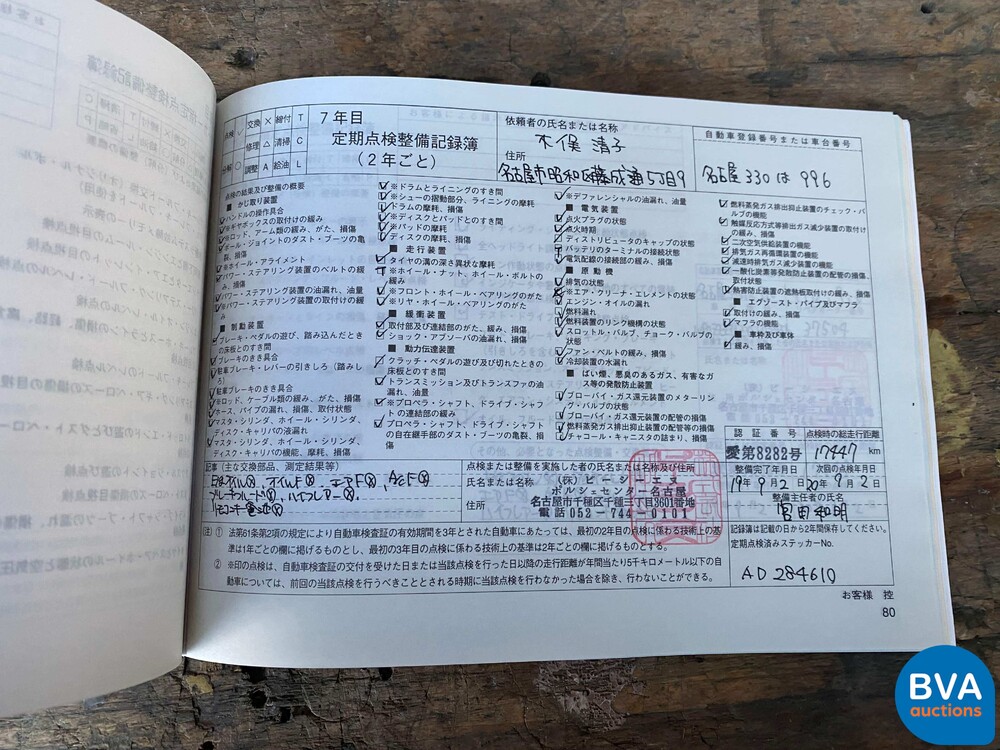 点検 ✓ 交換 × 締付 T
修理 △ 清掃 C
分解 ○ 調整 A 給油 L
7年目
定期点検整備記録簿
(2年ごと)
依頼者の氏名または名称
木俣 清子
住所
名古屋市昭和区藤成通5丁目9
自動車登録番号または車台番号
名古屋 330 は 996
点検の結果及び整備の概要
■ かじ取り装置
ハンドルの操作具合
※ギヤボックスの取付けの緩み
※ロッド、アーム類の緩み、がた、損傷
ボール・ジョイントのダスト・ブーツの亀裂、損傷
※ホイール・アライメント
パワー・ステアリング装置のベルトの緩み、損傷
パワー・ステアリング装置の油漏れ、油量
※パワー・ステアリング装置の取付けの緩み
■ 制動装置
ブレーキ・ペダルの遊び、踏み込んだときの床板とのすき間
ブレーキのきき具合
駐車ブレーキ・レバーの引きしろ(踏みしろ)
駐車ブレーキのきき具合
ロッド、ケーブル類の緩み、がた、損傷
ホース、パイプの漏れ、損傷、取付状態
マスタ・シリンダ、ホイール・シリンダ、ディスク・キャリパの液漏れ
マスタ・シリンダ、ホイール・シリンダ、ディスク・キャリパの機能、摩耗、損傷
※ドラムとライニングのすき間
※シューの摺動部分、ライニングの摩耗
ドラムの摩耗、損傷
※ディスクとパッドとのすき間
※パッドの摩耗
ディスクの摩耗、損傷
■ 走行装置
タイヤの溝の深さ異状な摩耗
※ホイール・ナット、ホイール・ボルトの緩み
※フロント・ホイール・ベアリングのがた
※リヤ・ホイール・ベアリングのがた
■ 緩衝装置
取付部及び連結部のがた、緩み、損傷
ショック・アブソーバの油漏れ、損傷
■ 動力伝達装置
クラッチ・ペダルの遊び及び切れたときの床板とのすき間
トランスミッション及びトランスファの油漏れ、油量
※プロペラ・シャフト、ドライブ・シャフトの連結部の緩み
プロペラ・シャフト、ドライブ・シャフトの自在継手部のダスト・ブーツの亀裂、損傷
※デファレンシャルの油漏れ、油量
■ 電気装置
※点火プラグの状態
点火時期
ディストリビュータのキャップの状態
バッテリのターミナルの接続状態
電気配線の接続部の緩み、損傷
■ 原動機
排気の状態
※エア・クリーナ・エレメントの状態
エンジン・オイルの漏れ
燃料漏れ
燃料装置のリンク機構の状態
スロットル・バルブ、チョーク・バルブの状態
ファン・ベルトの緩み、損傷
冷却装置の水漏れ
■ ばい煙、悪臭のあるガス、有害なガス等の発散防止装置
ブローバイ・ガス還元装置のメターリング・バルブの状態
ブローバイ・ガス還元装置の配管の損傷
燃料蒸発ガス排出抑止装置の配管等の損傷
チャコール・キャニスタの詰まり、損傷
燃料蒸発ガス排出抑止装置のチェック・バルブの機能
触媒反応方式等排出ガス減少装置の取付けの緩み、損傷
二次空気供給装置の機能
排気ガス再循環装置の機能
減速時排気ガス減少装置の機能
一酸化炭素等発散防止装置の配管の損傷、取付状態
熱害防止装置の遮熱板取付けの緩み、損傷
■ エグゾースト・パイプ及びマフラ
取付けの緩み、損傷
マフラの機能
■ 車枠及び車体
緩み、損傷
認証番号 点検時の総走行距離
愛第8282号 17447 km
整備完了年月日 次回の点検年月日
19年9月2日 20年9月2日
整備主任者の氏名
宮田和明
記録簿は記載の日から2年間保存してください。
定期点検済みステッカーNo.
AD 284610
記事 (主な交換部品、測定結果等)
点検または整備を実施した者の氏名または名称及び住所
氏名または名称 (株)ピーシーエヌ
ポルシェセンター名古屋
住所 名古屋市千種区千種三丁目3601番地
電話 052-744-0101
(注) ① 法第61条第2項の規定により、自動車検査証の有効期間を3年とされた自動車にあたっては、最初の2年目の点検に係わる技術上の基準は1年ごとの欄に掲げるものとし、最初の3年目の点検に係わる技術上の基準は2年ごとの欄に掲げるものとする。
② ※印の点検は、自動車検査証の交付を受けた日または当該点検を行った日以降の走行距離が年間当たり5千キロメートル以下の自動車については、前回の当該点検を行うべきこととされる時期に当該点検を行わなかった場合を除き、行わないことができる。
お客様 控
80
BVA
auctions